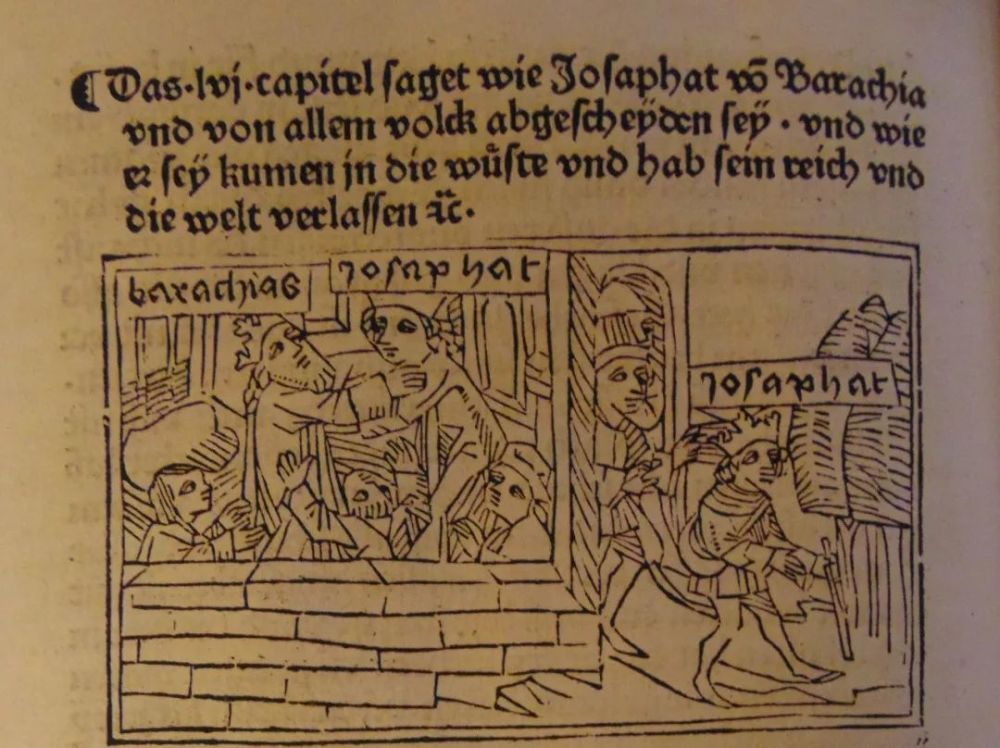 ¶ Das·lvj·capitel saget wie Josaphat võ Barachia
vnd von allem volck abgescheyden sey̋ · vnd wie
er sey̋ kumen jn die wuͤste vnd hab sein reich vnd
die welt verlassen ꝛc̈·
barachias
josaphat
josaphat